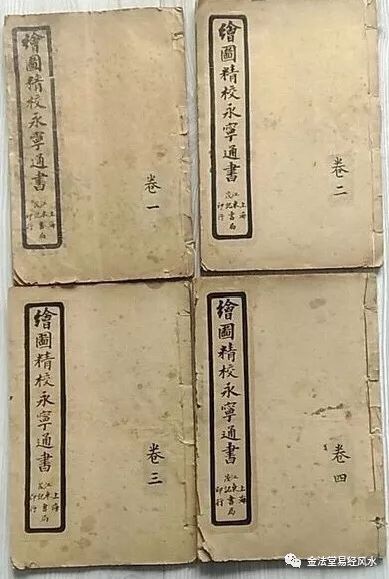 繪圖精校永寧通書
上海
江東
茂記
書局
印行
卷一
繪圖精校永寧通書
上海
江東
茂記
書局
印行
卷二
繪圖精校永寧通書
上海
江東
茂記
書局
印行
卷三
繪圖精校永寧通書
上海
江東
茂記
書局
印行
卷四
金法堂易经风水